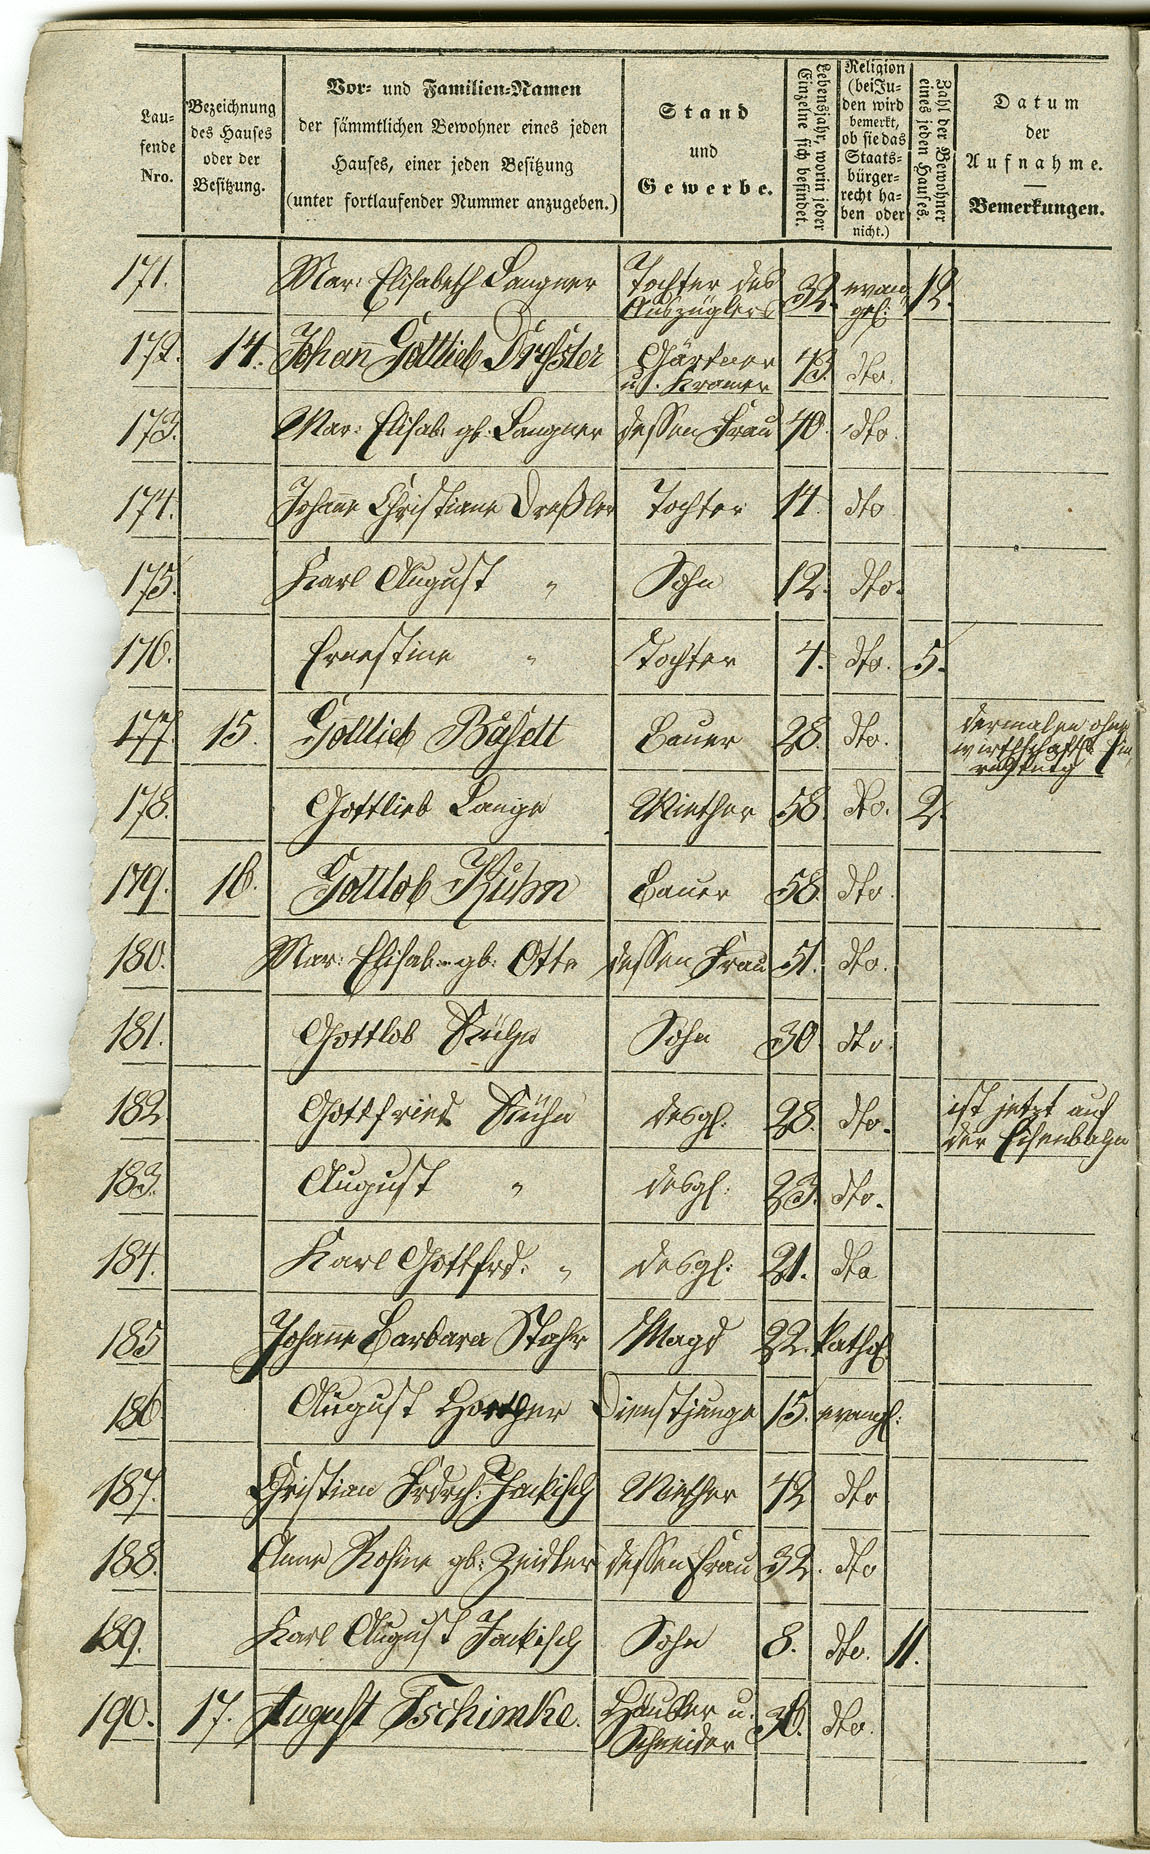 Laufende Nro.
Bezeichnung des Hauses oder der Besitzung.
Vor- und Familien-Namen
der sämmtlichen Bewohner eines jeden
Hauses, einer jeden Besitzung
(unter fortlaufender Nummer anzugeben.)
Stand
und
Gewerbe.
Lebensjahr, worin jeder Einzelne sich befindet.
Religion (bei Juden wird bemerkt, ob sie das Staatsbürgerrecht haben oder nicht.)
Zahl der Bewohner eines jeden Hauses.
Datum
der
Aufnahme.
Bemerkungen.
171. Mar: Elisabeth Langner Tochter des Auszüglers 32. evangel: 12.
172. 14. Johann Gottlieb Gärtner u. Kramer 43. dto.
173. Mar: Elisab: gb: Langner dessen Frau 40. dto.
174. Johanne Christiane Dreßler Tochter 14. dto.
175. Karl August " Sohn 12. dto.
176. Ernestine " Tochter 4. dto. 5.
177. 15. Gottlieb Bauer 28. dto. dermalen ohne wirthschaftl: Einrichtung
178. Gottlieb Lange Miether 58. dto. 2.
179. 16. Gottlob Kühn Bauer 58. dto.
180. Mar: Elisab: gb: Otte dessen Frau 51. dto.
181. Gottlob Kühn Sohn 30. dto.
182. Gottfried Kühn desgl. 28. dto. ist jetzt auf der Eisenbahn
183. August " desgl: 23. dto.
184. Karl Gottfrd. " desgl: 21. dto
185 Johanne Barbara Stahr Magd 22. kathol.
186 August Dienstjunge 15. evangl:
187. Christian Frdrch: Jackisch Miether 42 dto
188. Anne Rosine gb: Zeidler dessen Frau 32. dto
189. Karl August Jackisch Sohn 8. dto. 11.
190. 17. August Tschimke. Häusler u. Schneider 36. dto.